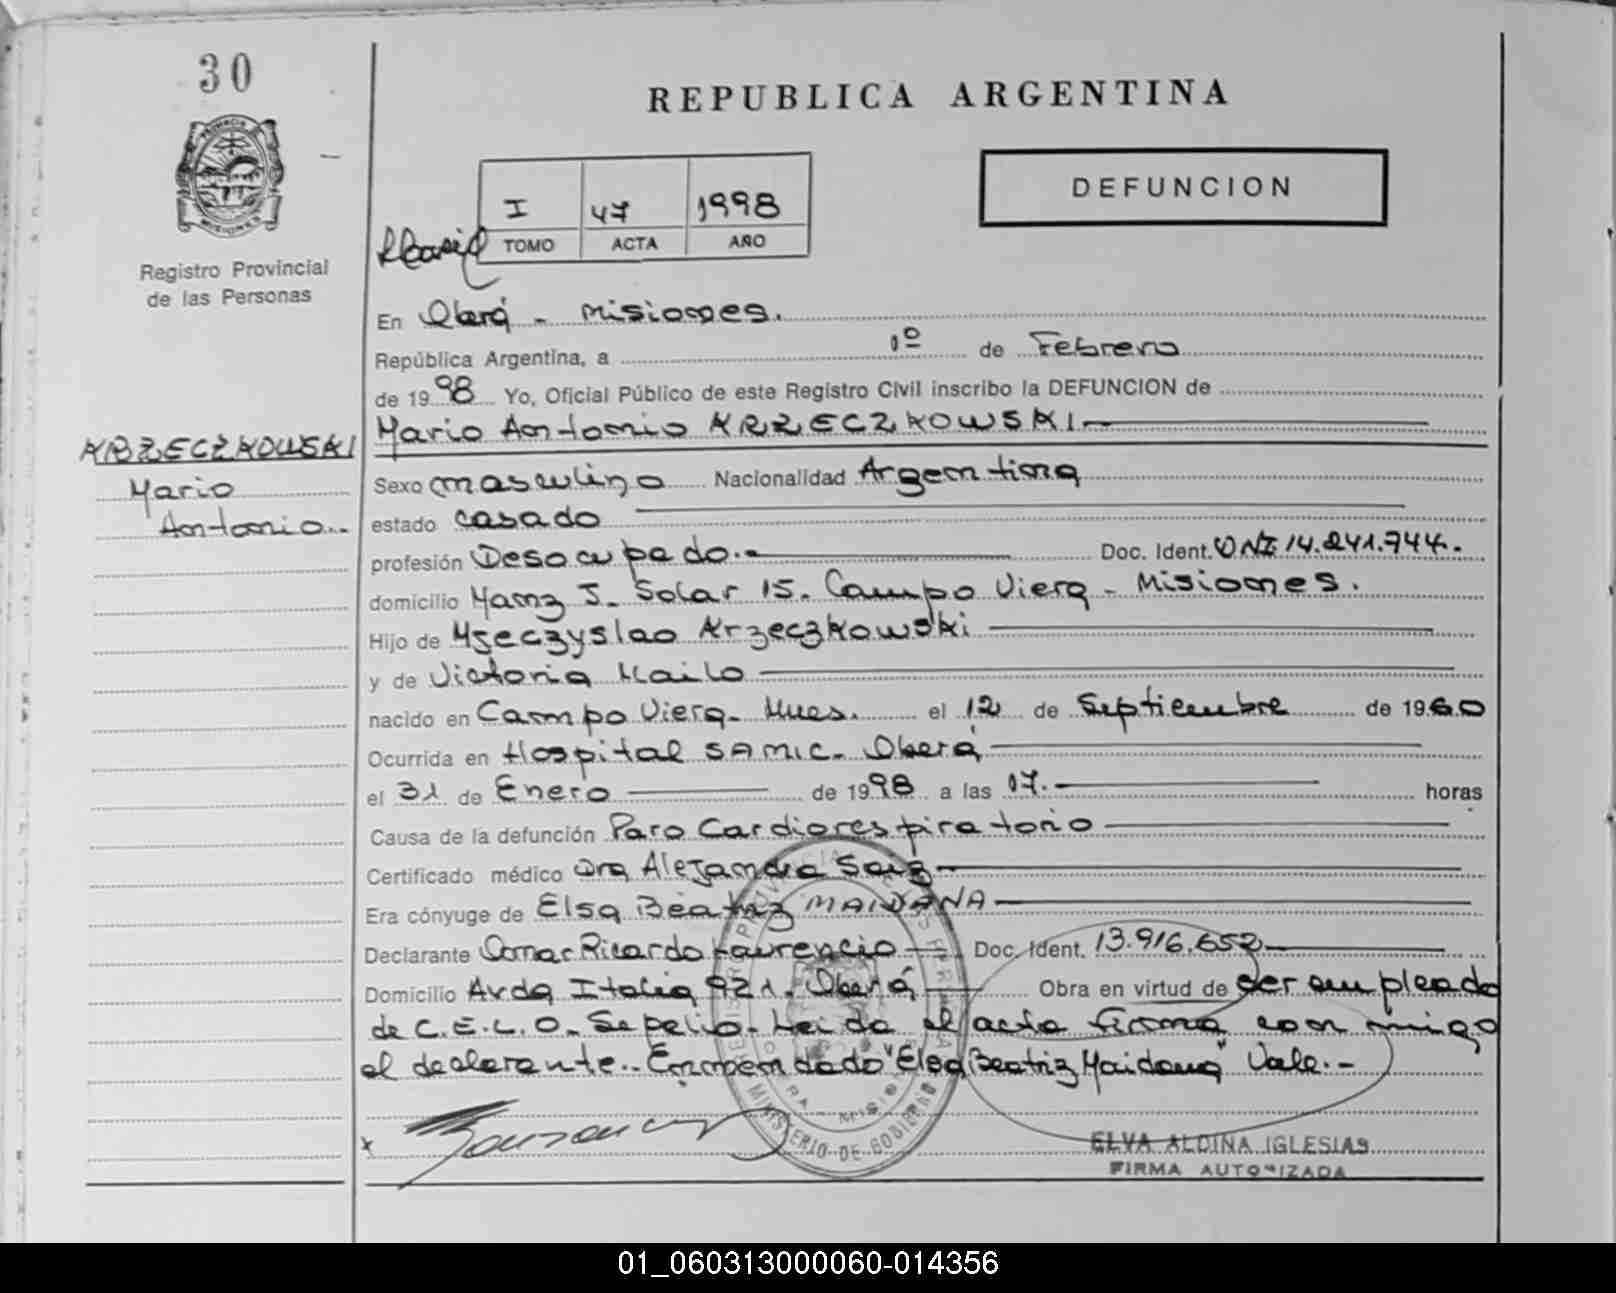 30
REPUBLICA ARGENTINA
DEFUNCION
I 47 1998
TOMO ACTA AÑO
Registro Provincial
de las Personas
En Oberá - Misiones.
República Argentina, a 1º de Febrero
de 1998 Yo, Oficial Público de este Registro Civil inscribo la DEFUNCION de
Mario Antonio KRZECZKOWSKI
KRZECZKOWSKI
Mario
Antonio
Sexo masculino Nacionalidad Argentina
estado casado
profesión Desocupado.- Doc. Ident. DNI 14.241.744.
domicilio Manz J. Solar 15. Campo Viera - Misiones.
Hijo de Mseczyslao Krzeczkowski
y de Victoria Kailo
nacido en Campo Viera - Mnes. el 12 de Septiembre de 1960
Ocurrida en Hospital SAMIC - Oberá
el 31 de Enero de 1998 a las 17. horas
Causa de la defunción Paro Cardiorespiratorio
Certificado médico Dra Alejandra Saiz
Era cónyuge de Elsa Beatriz MAIDANA
Declarante Omar Ricardo Laurencio Doc. Ident. 13.916.652
Domicilio Avda Italia 921. Oberá Obra en virtud de ser empleado
de C.E.L.O. Sepelio. Leida el acta firma con migo
el declarante.. Enmendado "Elsa Beatriz Maidana" Vale.-
MINISTERIO DE GOBIERNO
ELVA ALDINA IGLESIAS
FIRMA AUTORIZADA
01_060313000060-014356